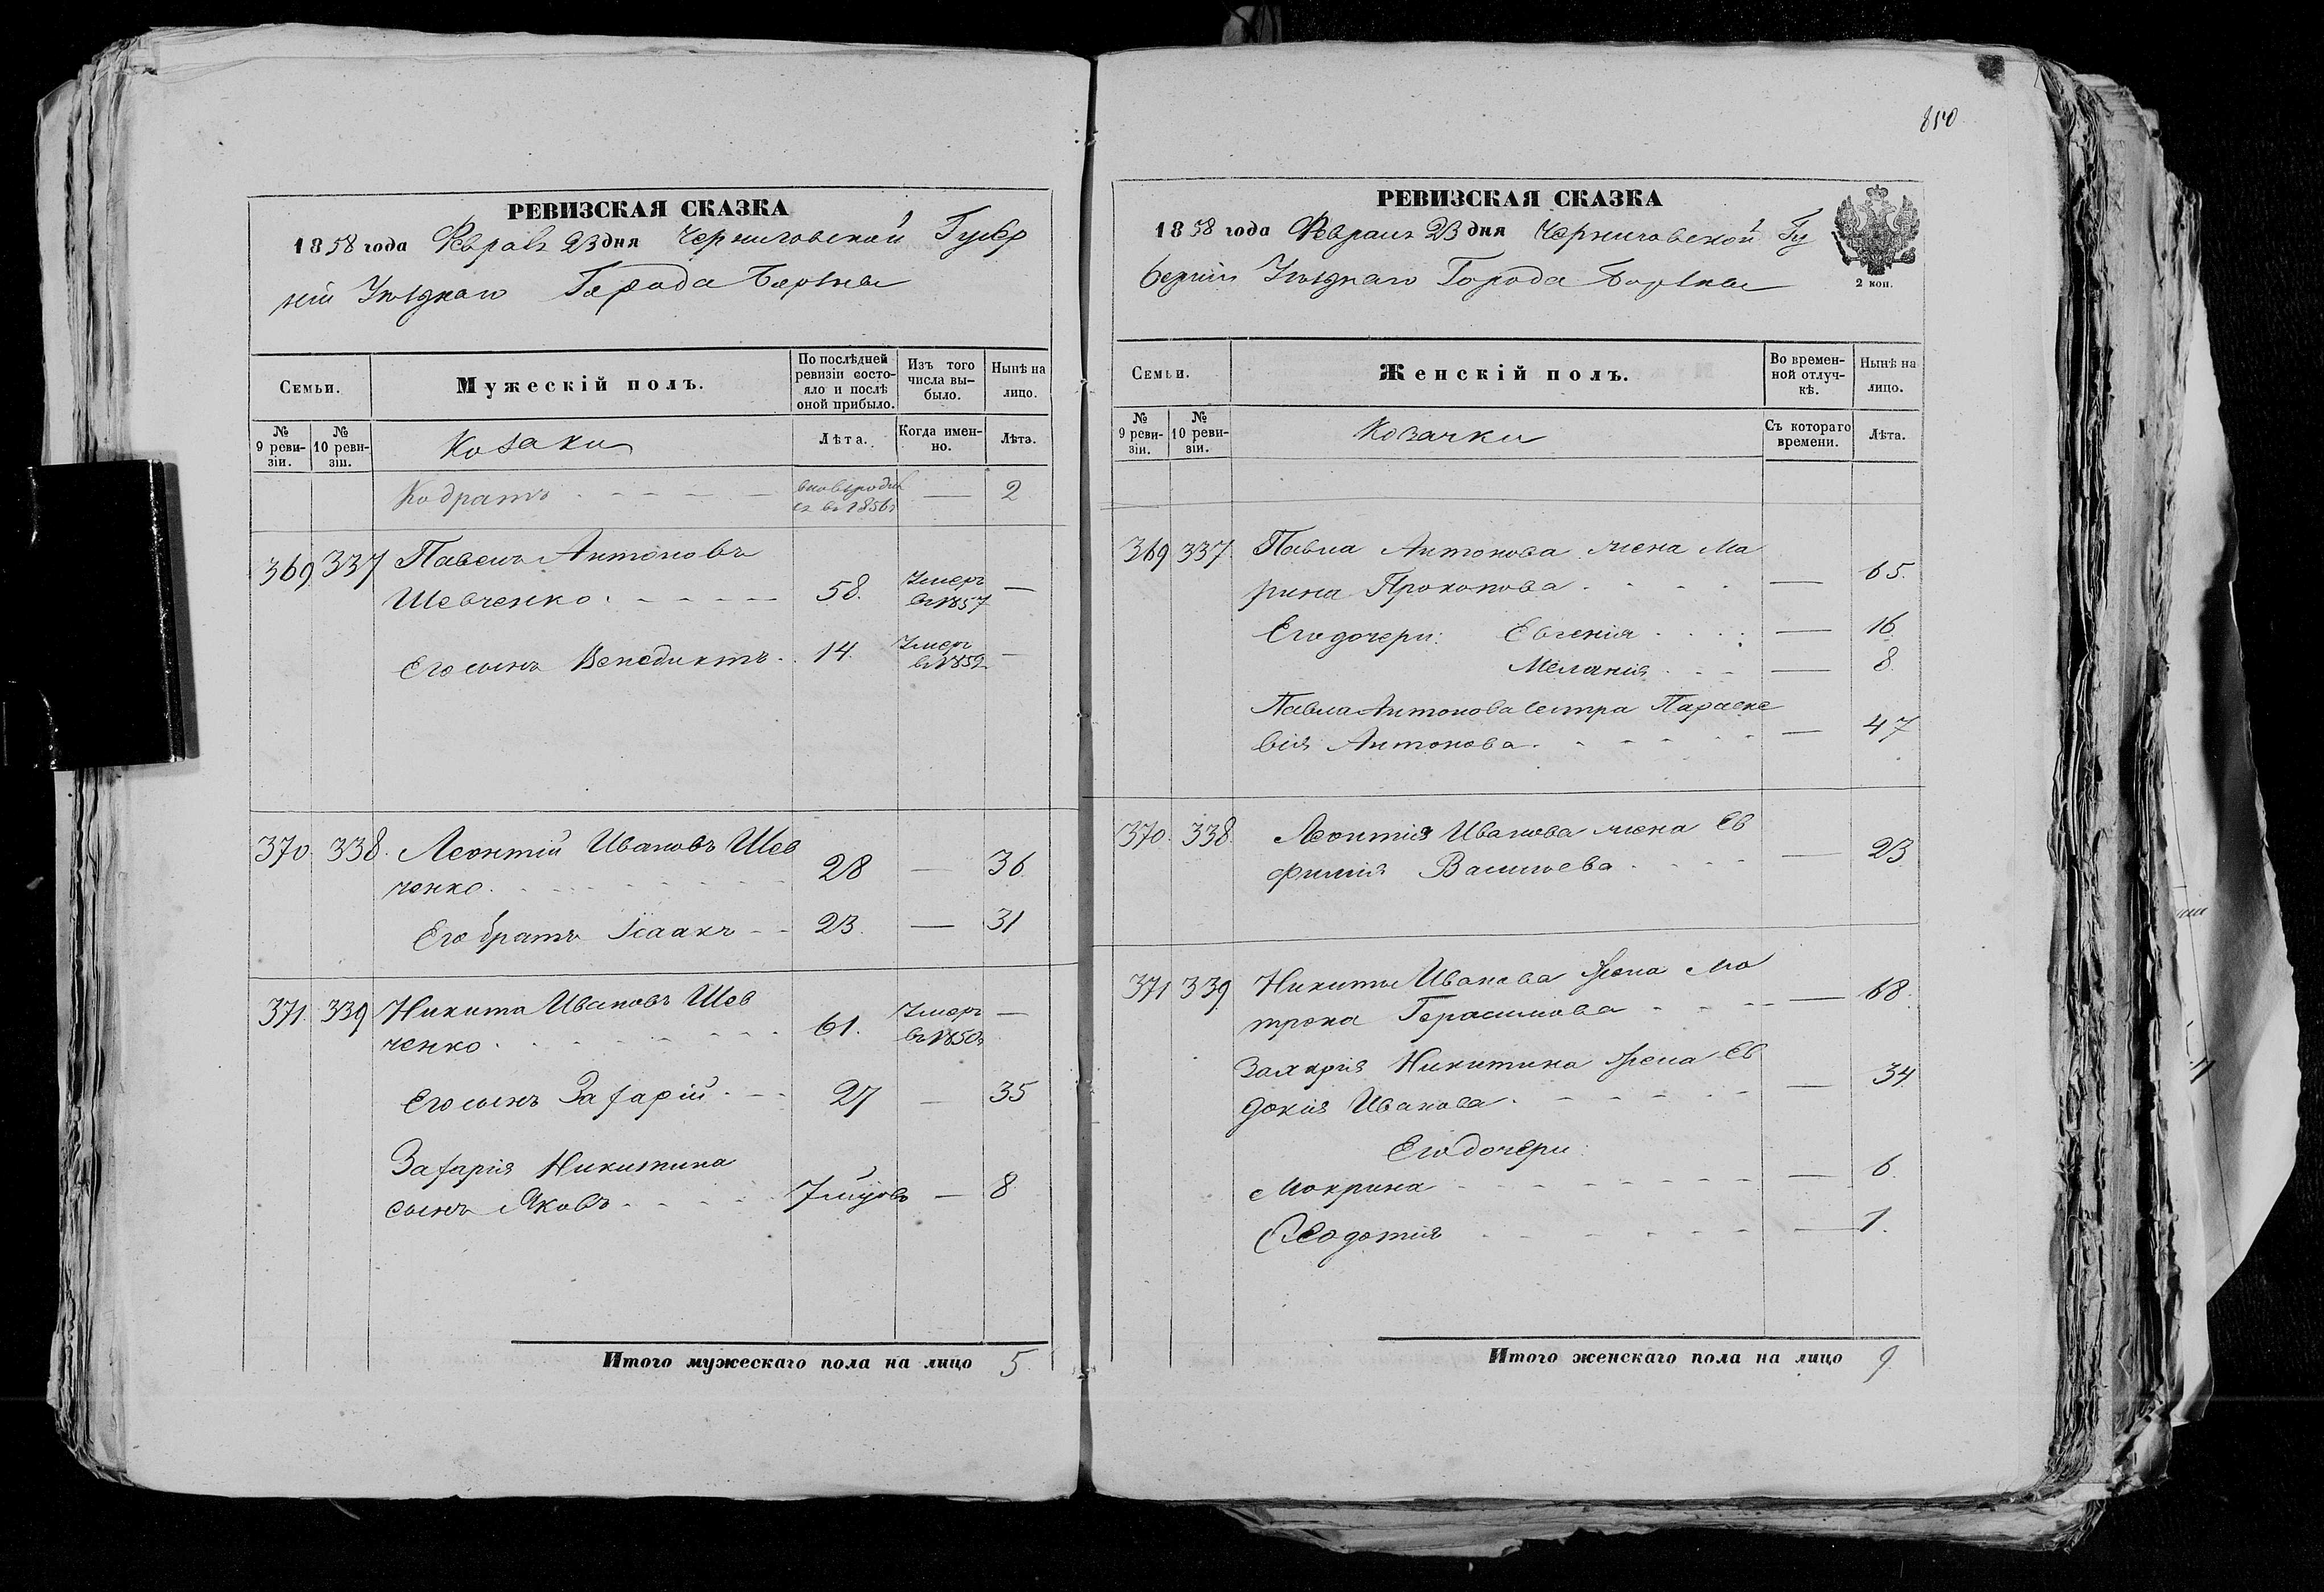 РЕВИЗСКАЯ СКАЗКА
1858 года Февраля 23 дня Черниговской Губер
ніи Уѣзднаго Города Борзны
Семьи.
Мужескій полъ.
По послѣдней ревизіи состояло и послѣ оной прибыло.
Изъ того числа выбыло.
Нынѣ на лицо.
№ 9 ревизіи.
№ 10 ревизіи.
Козаки
Лѣта.
Когда именно.
Лѣта.
Кодратъ - - - - вновь родил
ся въ 1856 г — 2
369 337 Павелъ Антоновъ
Шевченко - - - - 58. Умеръ въ 1857 —
Его сынъ Венедиктъ. 14. Умеръ въ 1852 —
370. 338. Леонтій Ивановъ Шев
ченко. - - - - 28 — 36.
Его братъ Исаакъ - - 23. — 31
371. 339 Никита Ивановъ Шев
ченко. - - - - 61. Умеръ въ 1850 —
Его сынъ Захарій. - - 27 — 35
Захарія Никитина
сынъ Яковъ - - - - 7 мѣсяцовъ — 8
Итого мужескаго пола на лицо 5.
850
РЕВИЗСКАЯ СКАЗКА
1858 года Февраля 23 дня Черниговской Гу
берніи Уѣзднаго Города Борзны
2 коп.
Семьи.
Женскій полъ.
Во временной отлучкѣ.
Нынѣ на лицо.
№ 9 ревизіи.
№ 10 ревизіи.
Козачки
Съ котораго времени.
Лѣта.
369 337 Павла Антонова жена Ма
рина Прокопова. - - - — 65.
Его дочери: Евгенія . . . . — 16
Меланія. - - - — 8.
Павла Антонова сестра Параске
вія Антонова. - - - - — 47
370. 338. Леонтія Иванова жена Ев
фимія Васильева. - - - — 23
371 339 Никиты Иванова жена Ма
трона Герасимова - - - — 68.
Захарія Никитина жена Ев
докія Иванова. - - - - — 34
Его дочери:
Макрина - - - - — 6.
Феодотія - - - - — 1.
Итого женскаго пола на лицо 9.